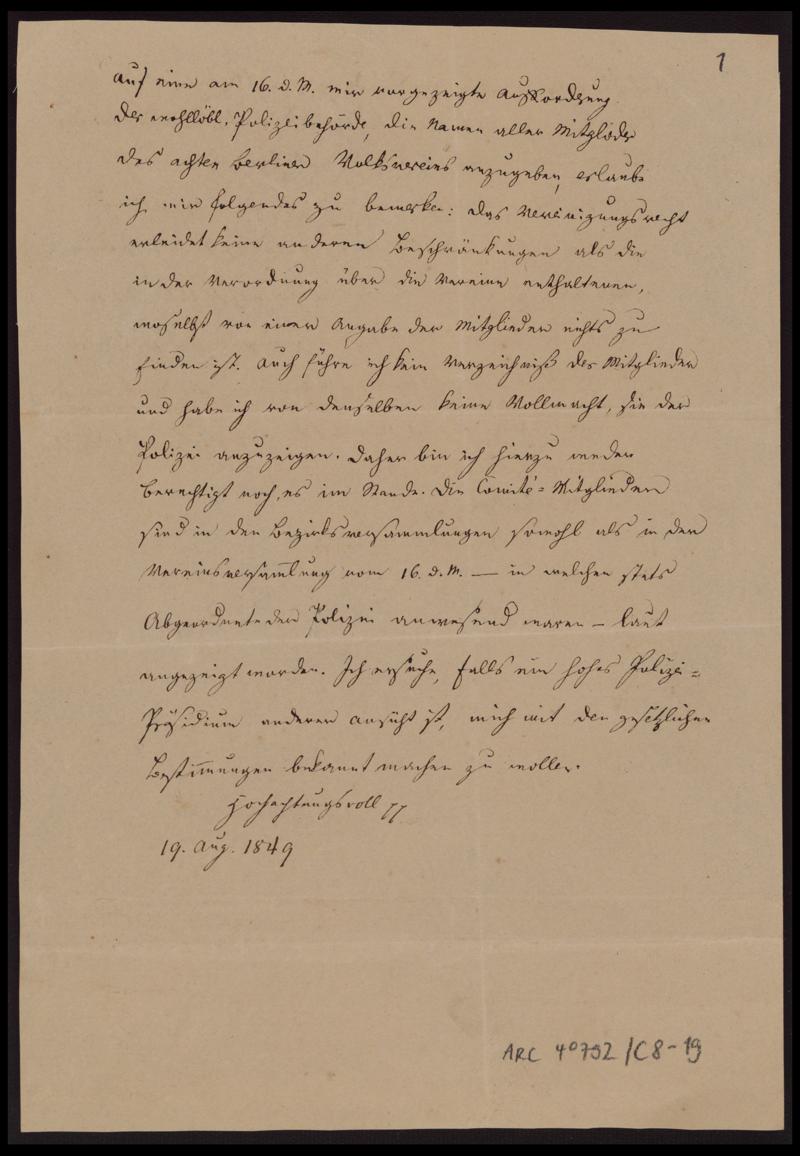 1
Auf eine am 16. d. M. mir vorgezeigte Aufforderung
der wohllöbl. Polizeibehörde, die Namen aller Mitglieder
des achten Berliner Volksvereins anzugeben, erlaube
ich mir folgendes zu bemerken: das Vereinigungsrecht
erleidet keine anderen Beschränkungen als die
in der Verordnung über die Vereine enthaltenen,
woselbst von einer Angabe der Mitglieder nichts zu
finden ist. Auch führe ich kein Verzeichniß der Mitglieder
und habe ich von denselben keine Vollmacht, sie der
Polizei anzuzeigen. Daher bin ich hierzu weder
berechtigt noch, es im Stande. Die Comité-Mitglieder
sind in den Bezirksversammlungen sowohl als in der
Vereinsversammlung vom 16. d. M. — in welchen stets
Abgeordnete der Polizei anwesend waren – laut
angezeigt worden. Ich ersuche, falls ein hohes Polizei=
Präsidium anderer Ansicht ist, mich mit den gesetzlichen
Bestimmungen bekannt machen zu wollen.
Hochachtungsvoll pp
19. Aug. 1849
ARC 40792/C8-19